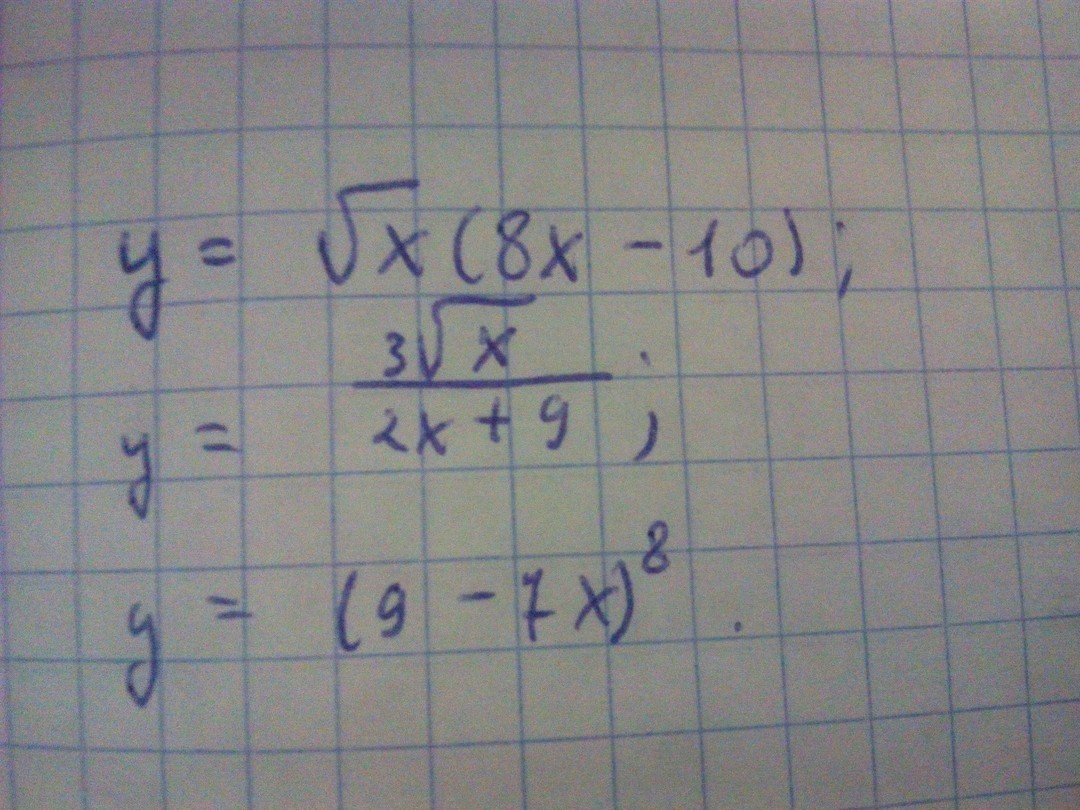 y = √x(8x - 10);
y = 3√x / 2x + 9 ;
y = (9 - 7x)⁸ .